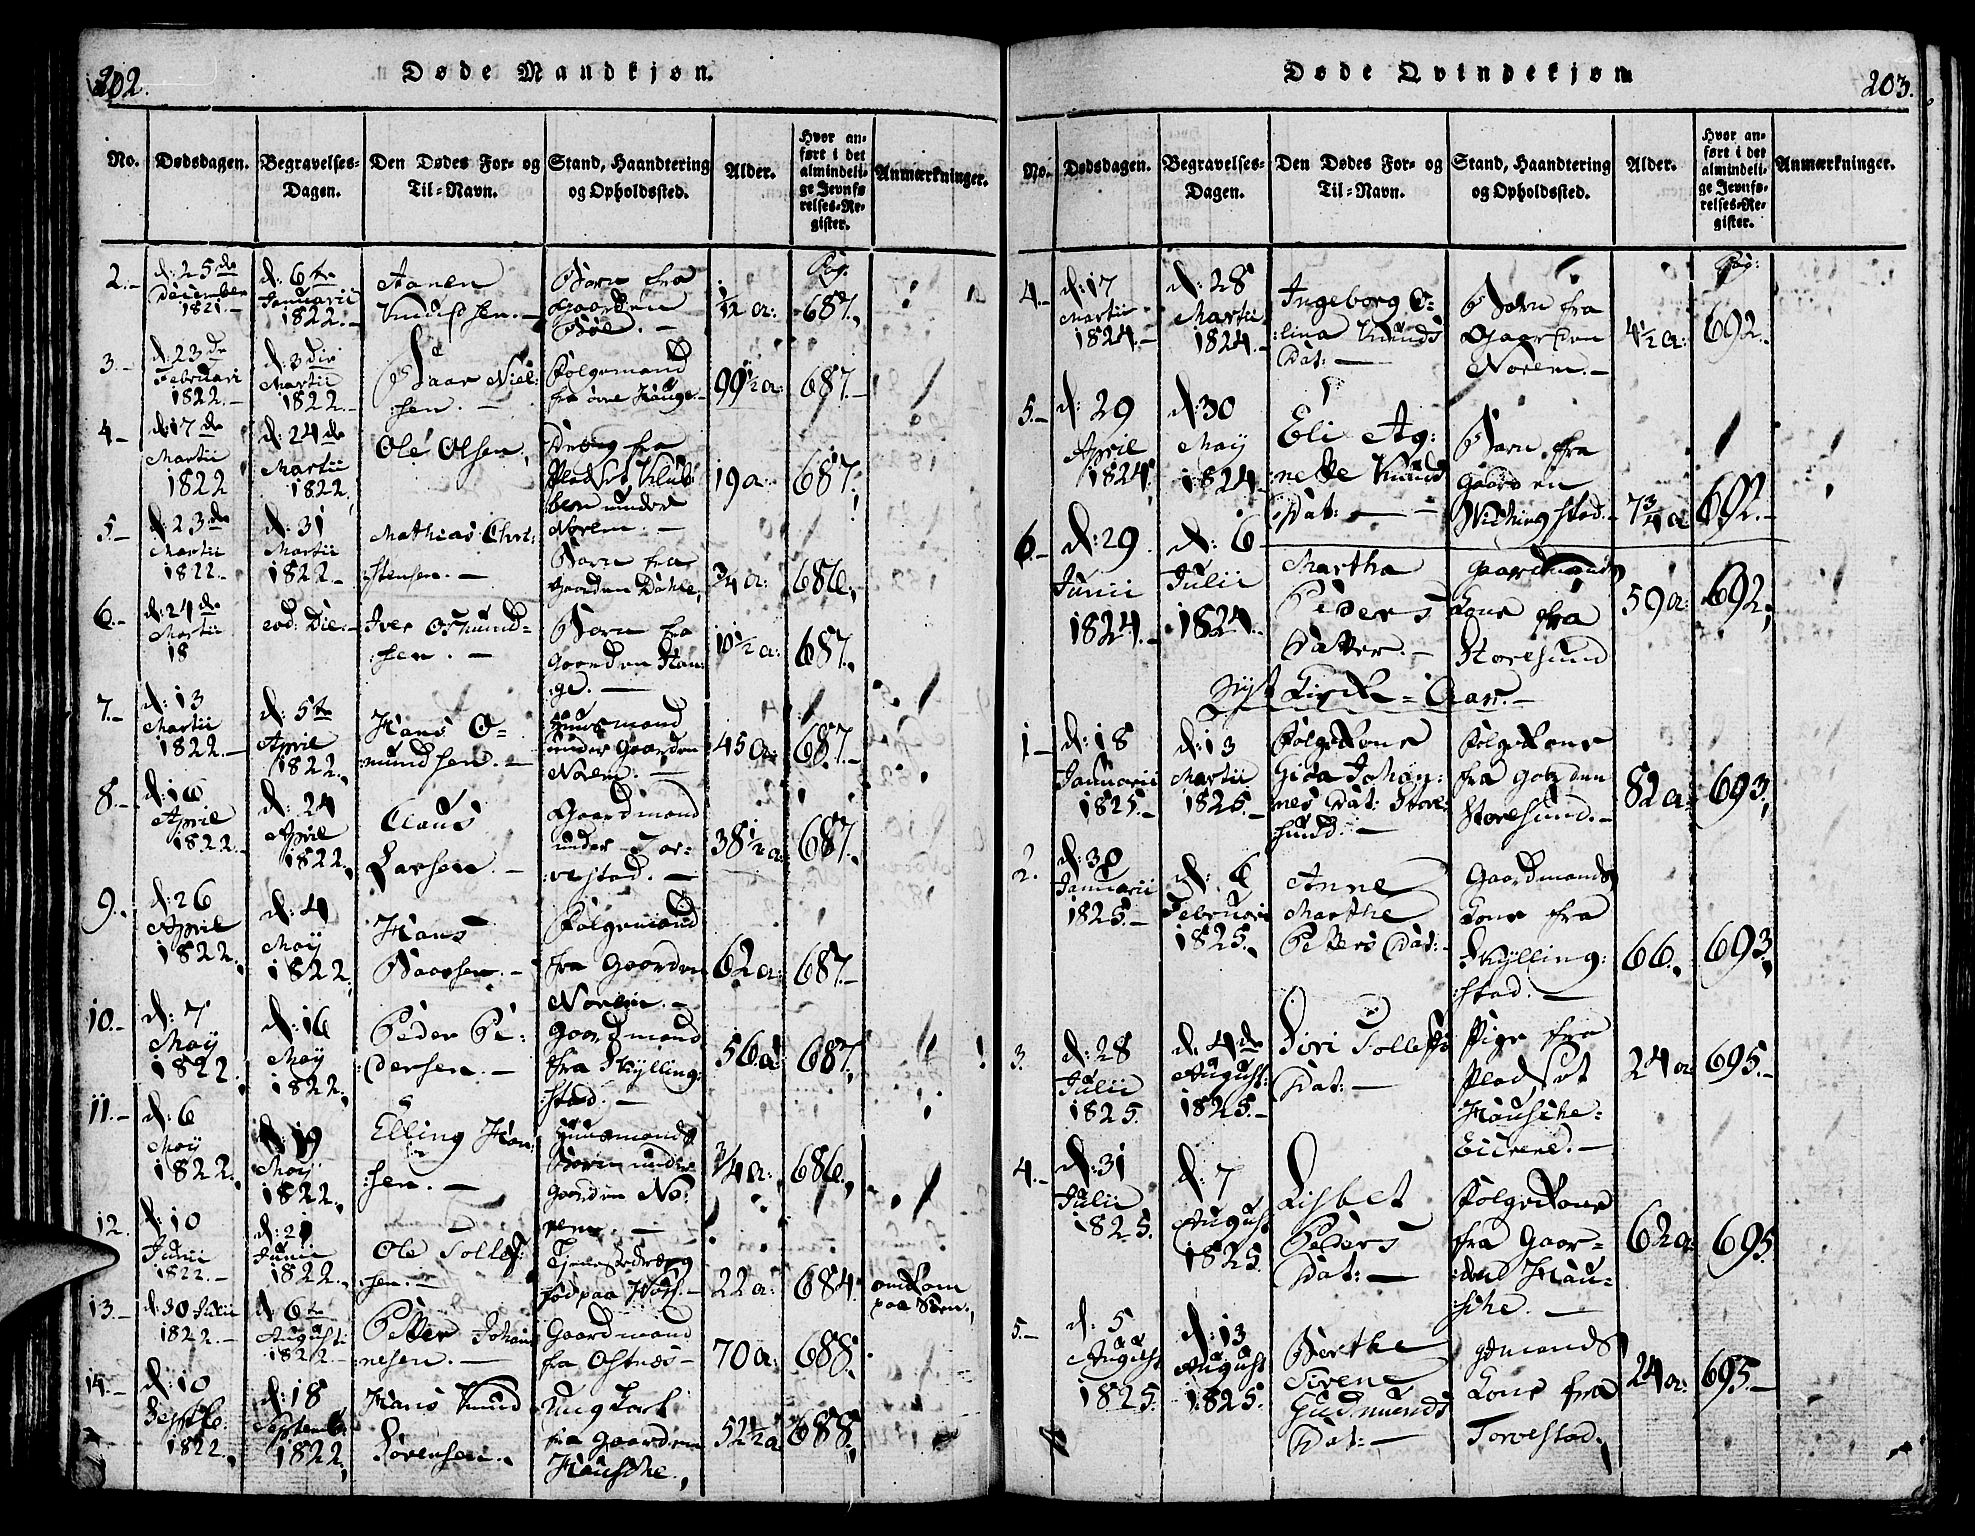 202.
Døde Mandkjøn.
No.
Dødsdagen.
Begravelses-
Dagen.
Den Dødes For- og
Til-Navn.
Stand, Haandtering
og Opholdssted.
Alder.
Hvor an-
ført i det
almindeli-
ge Jevnfø-
relses-Re-
gister.
Anmærkninger.
2.-
d: 25de
December
1821.-
d. 6te
Januarii
1822.-
Aanen
Knudssen.-
Barn fra
Gaarden
Bøe.-
1/2 a:
Pag.
687.
3.-
d: 23de
Februari
1822.-
d: 3die
Martii
1822.-
Baar Niel:
:sen.-
Følgemand
fra øvre Hauge-
99 1/2 a:
687.-
4.-
d: 17de
Martii
1822
d: 24de
Martii
1822,
Ole Olsen,
Dreng fra
Pladset
under
Norem.-
19 a:
687.
5.-
d: 23de
Martii
1822.-
d: 31
Martii
1822.-
Mathias Chri:
:stensen.-
Barn fra
Gaarden Dahle,
3/4 a:
686.,
6.-
d: 24de
Martii
18
eod: Die.-
Iver Osmund-
:sen.-
Barn fra
Gaarden Hau:
:ge.-
10 1/2 a:
687.,
7.-
d: 13
Martii
1822.-
d: 5te
April
1822.,
Hans O=
mundsen.-
Huusmand
under Gaarden
Norem.-
45 a:
687.-
8.-
d: 16
April
1822.-
d: 24
April
1822.,
Claus
Larsen.-
Gaardmand
under Tor:
:vestad.-
38 1/2 a:
687.
9.
d: 26
April
1822.,
d: 4
Maij
1822,
Hans
Baarsen.-
Følgemand
fra Gaarden
Norem.-
62 a:
687.-
10.-
d: 7
Maij
1822.,
d: 16
Maij
1822.,
Peder Pe-
:dersen.-
Gaardmand
fra Skylling:
:stad.-
56. a:
687.,
11.-
d: 6
Maij
1822.,
d: 19
Maij
1822.,
Elling Han:
:sen.-
Huusmands
Barn under
Gaarden No:
rem.-
3/4 a:
686.,
12.
d: 10
Junii
1822.-
d: 21
Junii
1822.,
Ole Tollefs
:sen.-
Tjenestedreng
fød paa
22 a:
684.
omkom
paa Søen,
13.-
d: 30 Julii
1822.-
d. 6te
August:
1822.-
Petter Johan:
nesen.-
Gaardmand
fra Ostnes-
70 a:
688.
14.-
d: 10
Septbr:
1822.,
d: 18
Septemb:
1822,
Hans Knud
Sørensen.,
Ungkarl
fra Gaarden
Hausche,
52 1/2 a:
688.,
203.
Døde Qvindekjøn
No.
Dødsdagen.
Begravelses-
Dagen.
Den Dødes For- og
Til-Navn.
Stand, Haandtering
og Opholdssted.
Alder.
Hvor an-
ført i det
almindeli-
ge Jevnfø-
relses-Re-
gister.
Anmærkninger.
4.-
d: 17
Martii
1824.-
d: 28
Martii
1824.-
Ingeborg O:
:lina Knuds
Dat:-
Barn fra
Gaarden
Norem.-
4 1/2 a:
Pag:
692.-
5.-
d: 29
April
1824,
d: 30
Maij
1824.-
Eli Ag:
:nette Knuds
Dat:-
Barn fra
Gaarden
73/4 a
692.-
6.-
d: 29
Junii
1824.-
d: 6
Julii
1824.-
Martha
Peders
Datter.-
Gaardmands
Kone fra
Storesund
59 a:
692,
Nyt Kirke=Aar.-
1.-
d: 18
Januarii
1825.-
d: 13
Martii
1825.-
Følgekone
Gida Johan:
nes Dat: Store:
sund.-
Følgekone
fra Gaarden
Storesund.-
82 a:
693,
2.
d: 30
Januarii
1825.-
d: 6
Februari
1825.-
Anne
Marthe
Petters Dat:-
Gaardmands
Kone fra
Skylling:
:stad.-
66.,
693.,
3.
d: 28
Julii
1825.
d. 4de
August:
1825.-
Siri Tollefs
Dat:-
Pige fra
Pladset
Hausche=
24 a
695.-
4.-
d: 31
Julii
1825.
d: 7
August
1825.
Lisbet
Peders
Dat:-
Følgekone
fra Gaar-
:den Hau:
:sche.-
62 a:
695
5.-
d: 5
August
1825.
d: 13
August
1825.
Berthe
Sirene
Gudmunds
Dat:-
Gdmands
Kone fra
Torvestad.,
24 a:
695.-